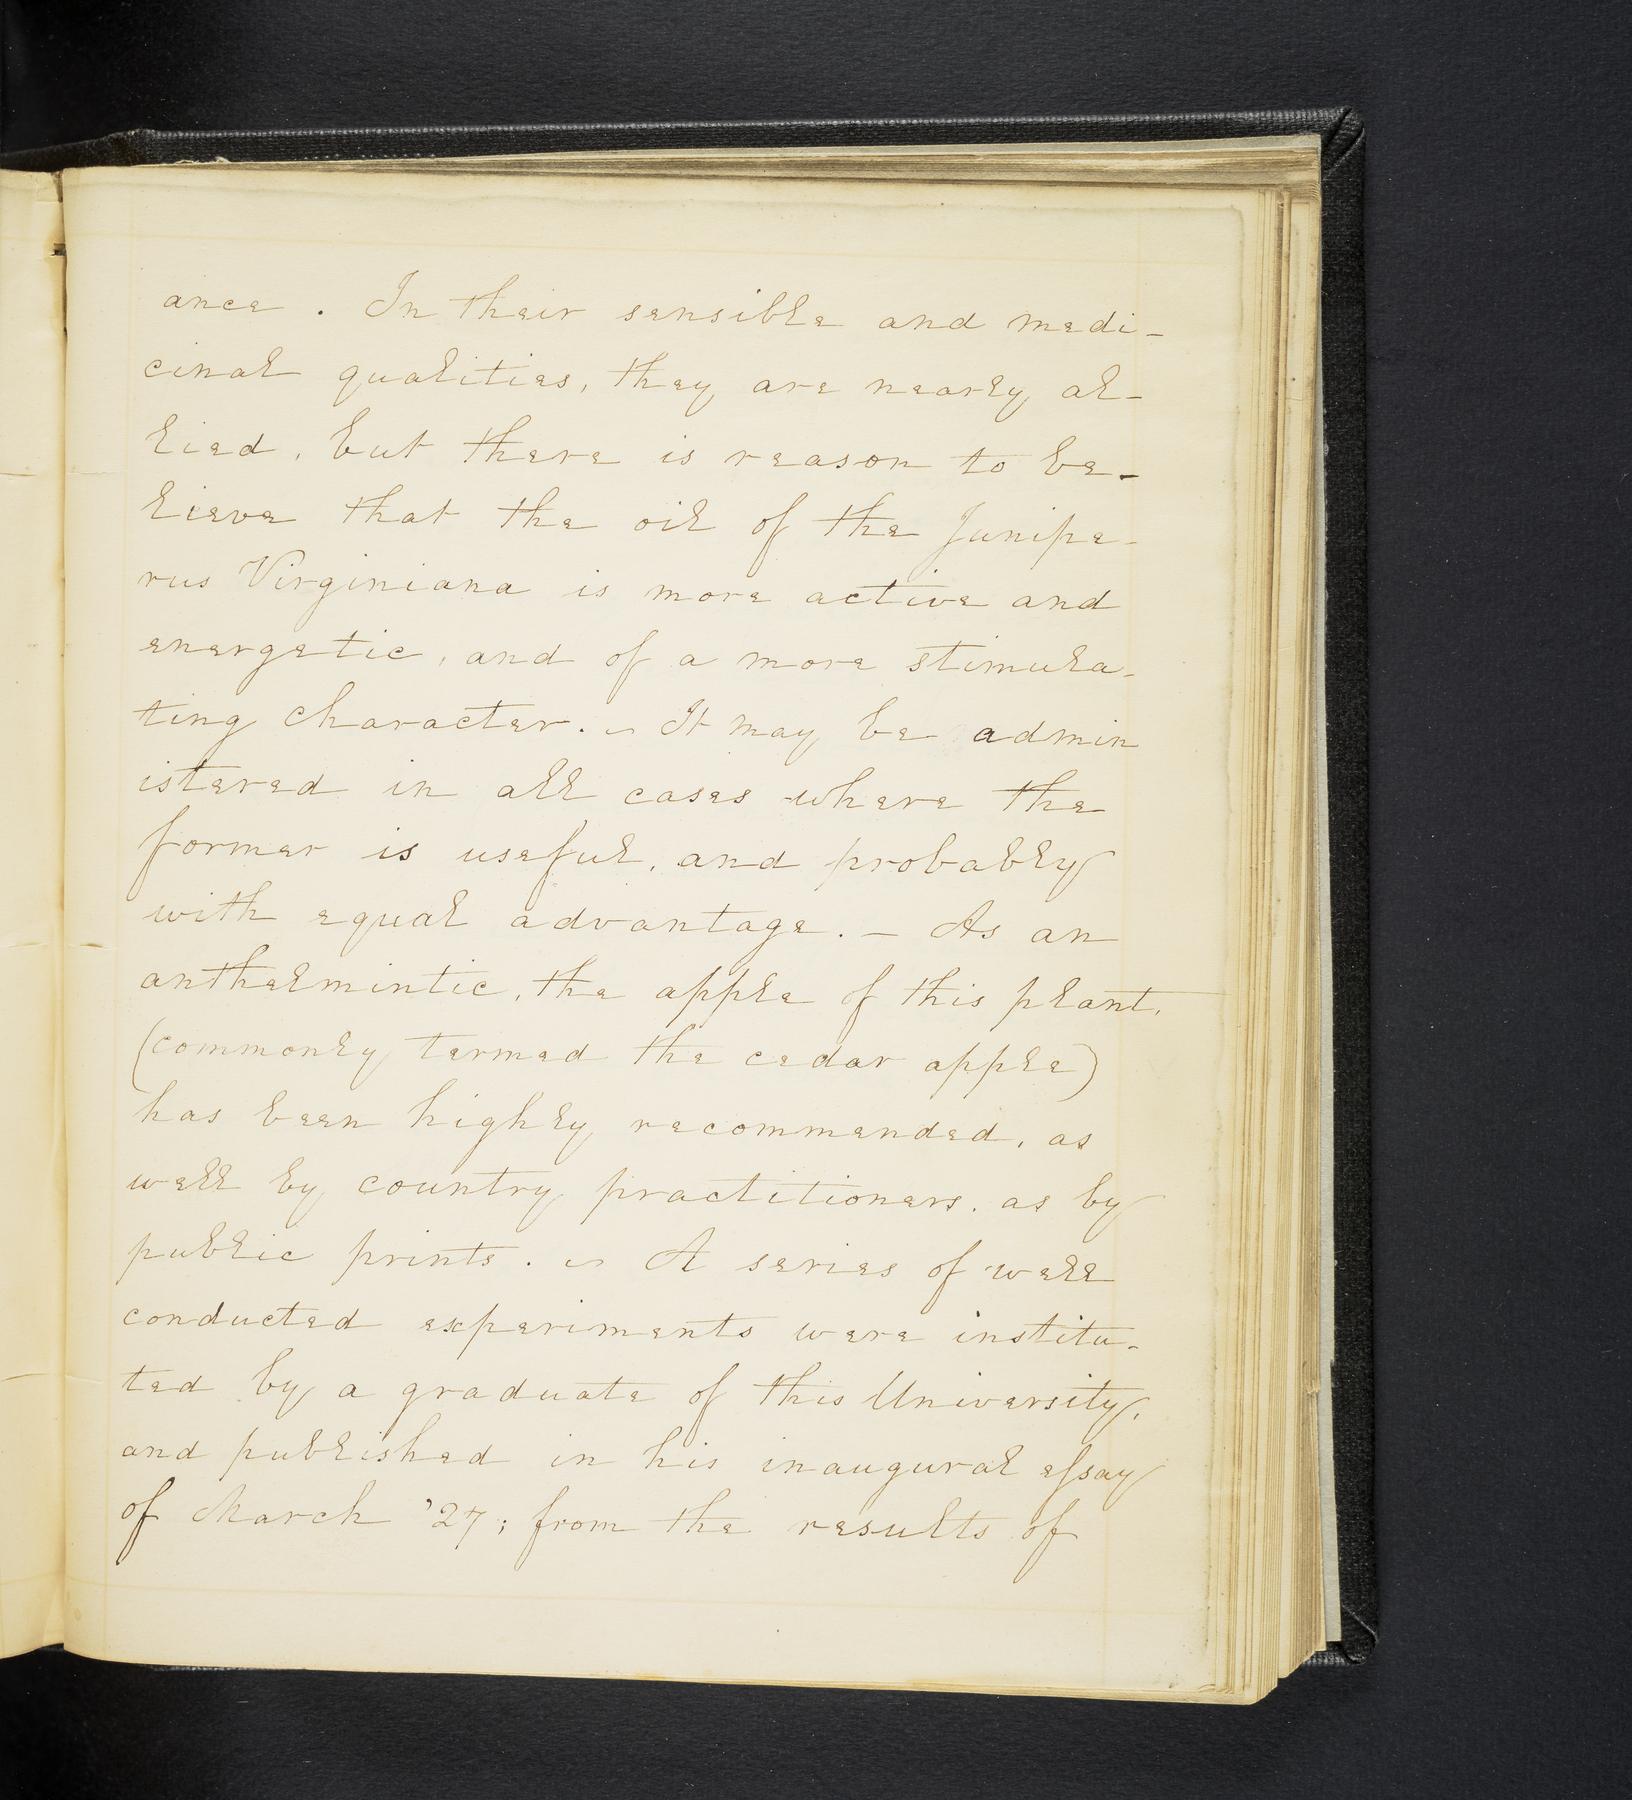 ance. In their sensible and medi-
cinal qualities, they are nearly al-
lied, but there is reason to be-
lieve that the oil of the Junipe-
rus Virginiana is more active and
energetic, and of a more stimula-
ting character. – It may be admin
istered in all cases where the
former is useful, and probably
with equal advantage. – As an
anthelmintic, the apple of this plant,
(commonly termed the cedar apple)
has been highly recommended, as
well by country practitioners, as by
public prints. – A series of well
conducted experiments were institu-
ted by a graduate of this University,
and published in his inaugural eſsay
of March '27; from the results of